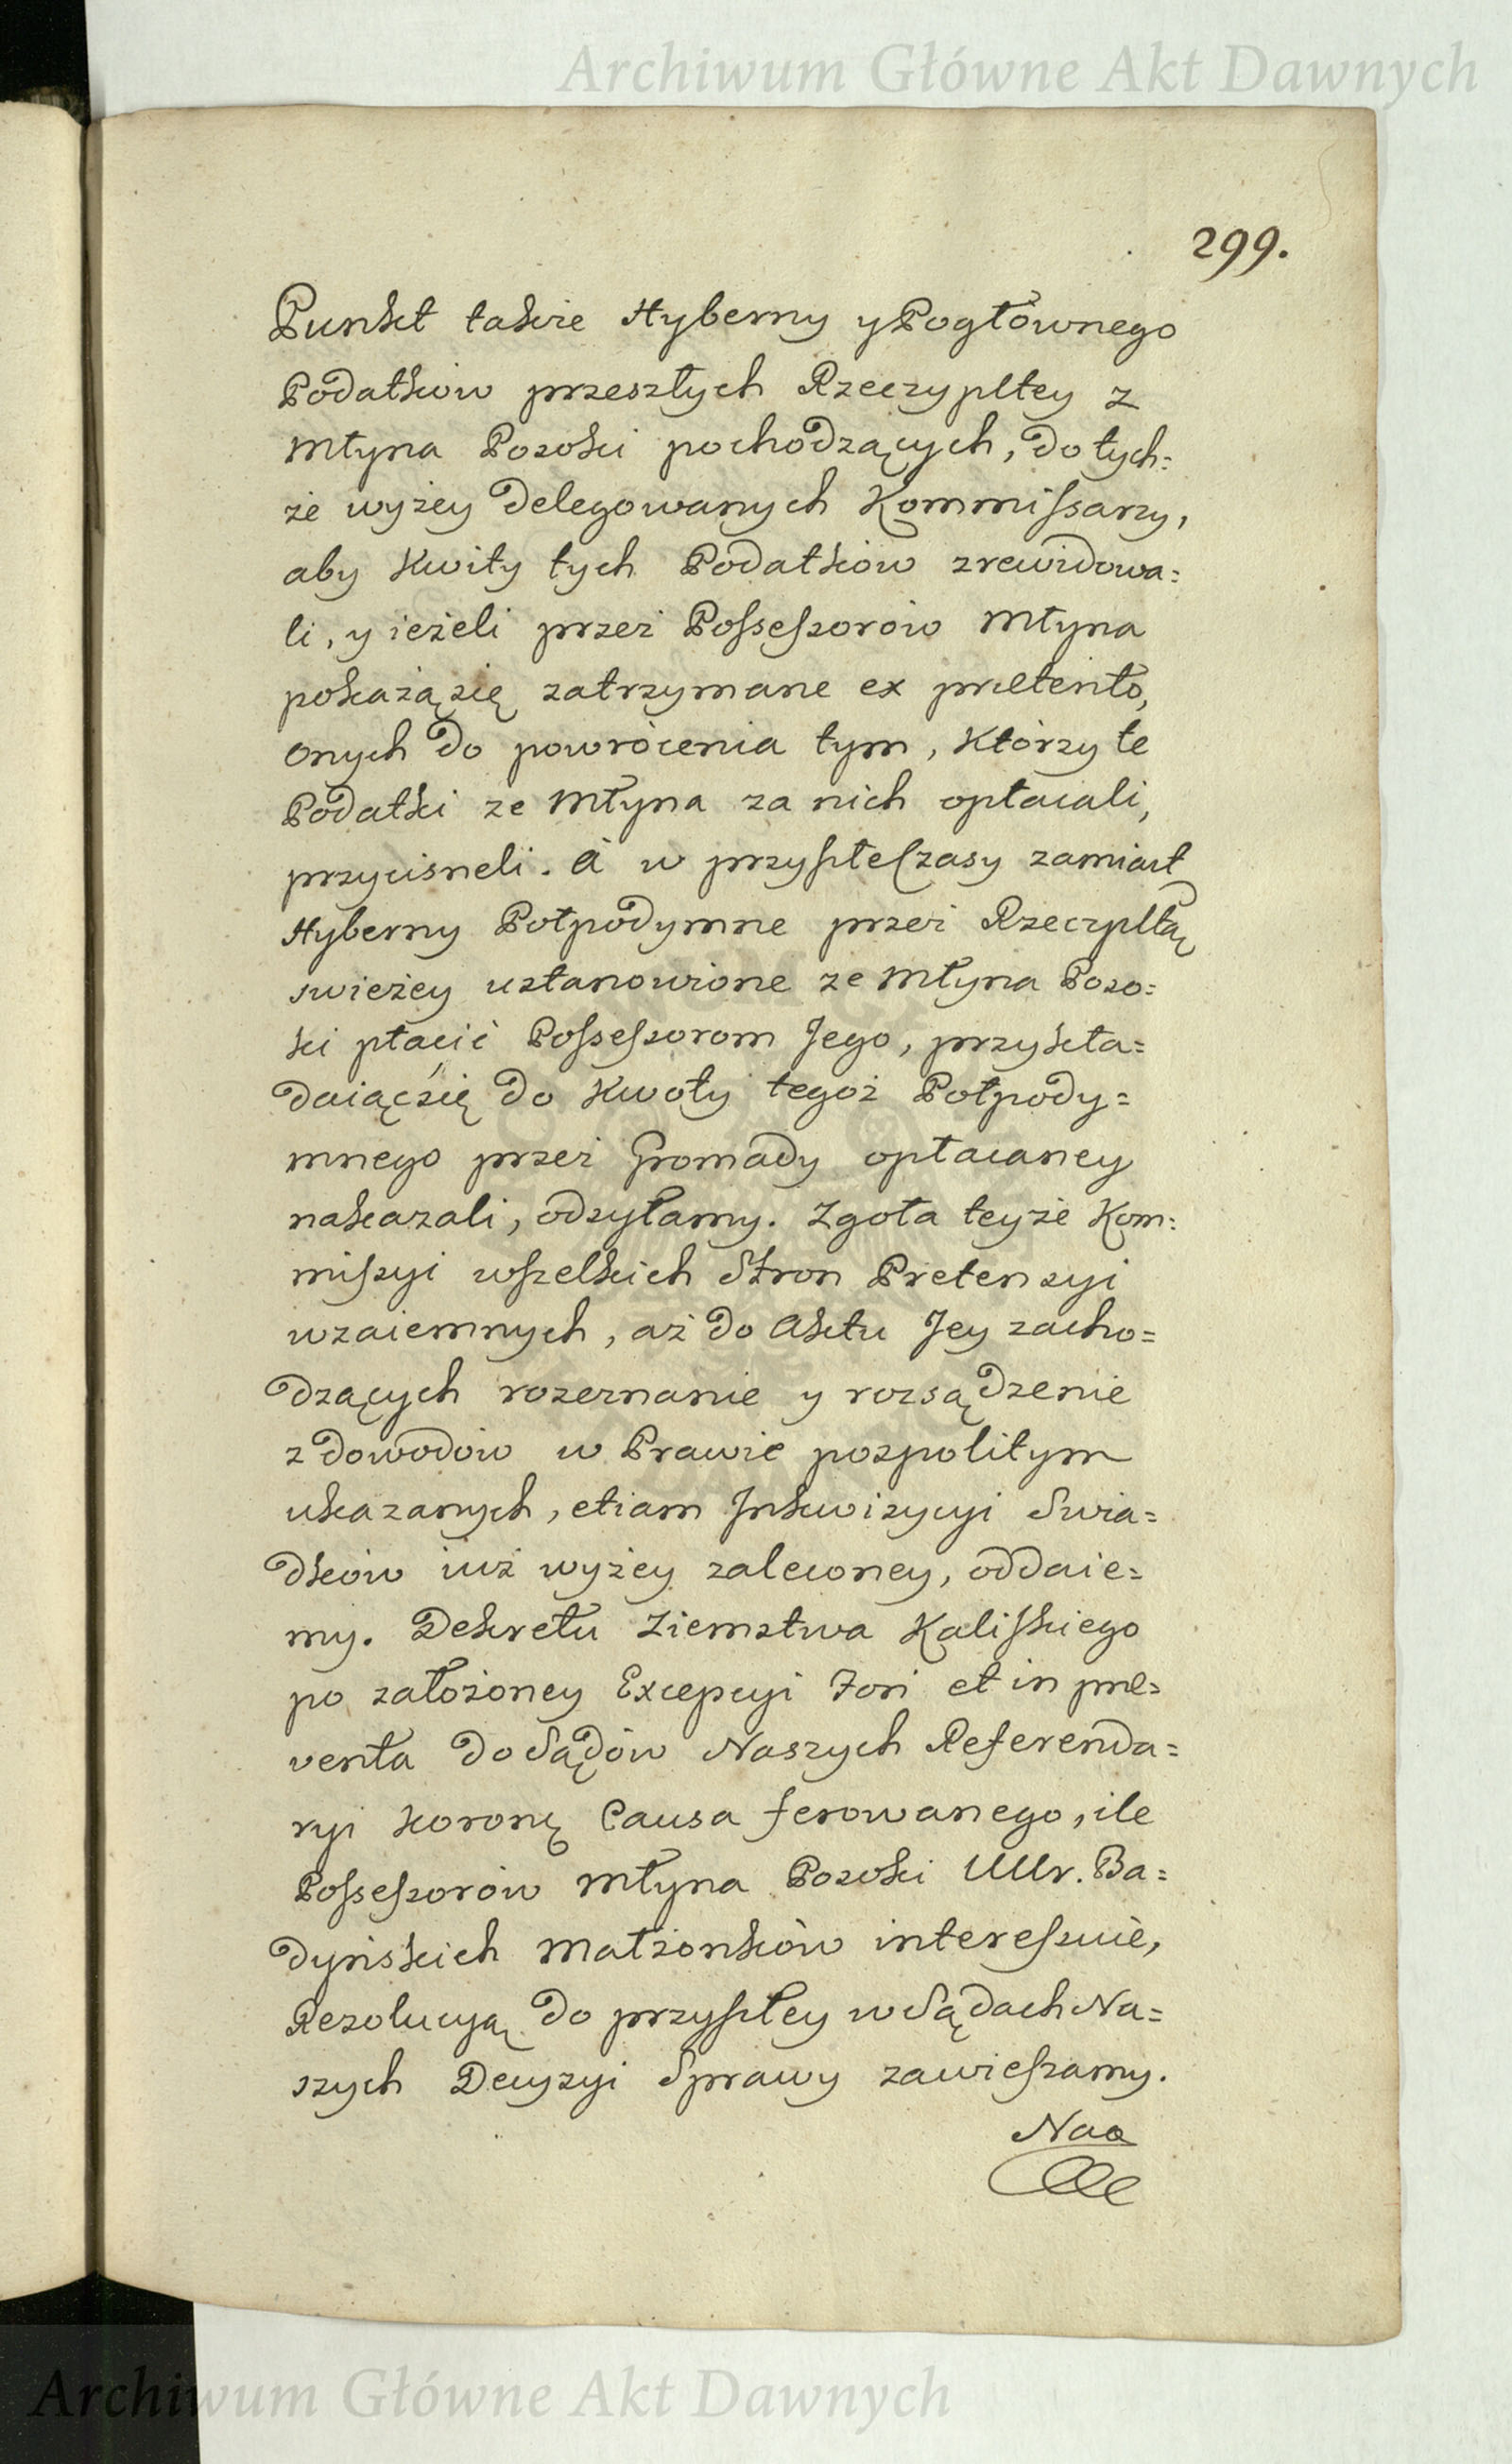 Archiwum Główne Akt Dawnych
299.
Punkt także Hyberny y Pogłównego
Podatków przeszłych Rzeczypltey z
Młyna Pozoki pochodzących, do tych=
że wyżey Delegowanych Kommissarzy,
aby Kwity tych Podatków zrewidowa=
li, y ieżeli przez Possessorów Młyna
pokażą się zatrzymane ex praetento,
onych do powrócenia tym, którzy te
Podatki ze Młyna za nich opłacali,
przycisneli. A w przyszłe czasy zamiast
Hyberny Połpodymne przez Rzeczpltą
swieżey ustanowione ze Młyna Pozo=
ki płacić Possessorom Jego, przykła=
daiąc się do Kwoty tegoż Połpody=
mnego przez Gromady opłacaney
nakazali, odsyłamy. Zgoła teyże Kom=
missyi wszelkich Stron Pretensyi
wzaiemnych, aż do Aktu Jey zacho=
dzących rozeznanie y rozsądzenie
z dowodów w Prawie pospolitym
ukazanych, etiam Inkwizycyi Swia=
dków iuż wyżey zaleconey, oddaie=
my. Dekretu Ziemstwa Kaliskiego
po założoney Excepcyi Fori et in prae=
venta do Sądów Naszych Referenda=
ryi koronę Causa ferowanego, ile
Possessorów Młyna Pozoki UUr. Ba=
dyńskich Małżonków interessuie,
Rezolucyą do przyszłey w Sądach Na=
szych Decyzyi Sprawy zawieszamy.
Nao
Archiwum Główne Akt Dawnych